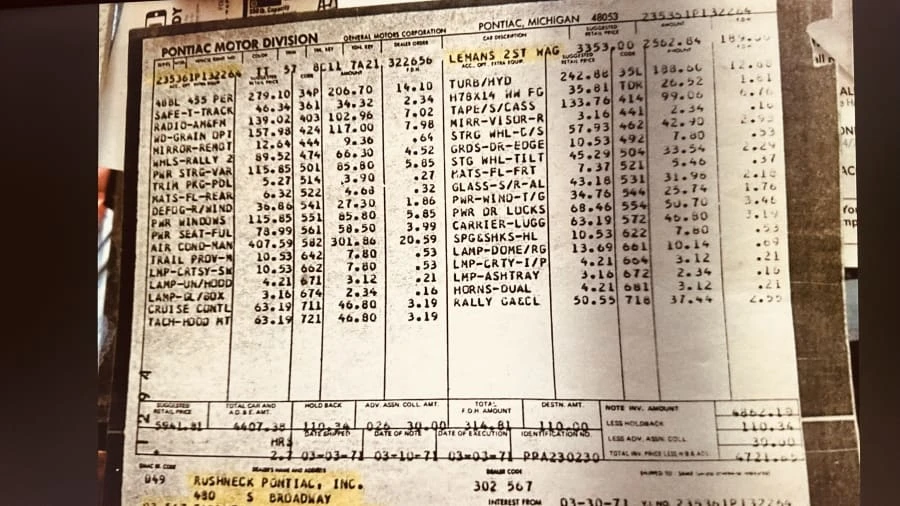 PONTIAC MOTOR DIVISION GENERAL MOTORS CORPORATION PONTIAC, MICHIGAN 48053 235361P132264
SUGGESTED RETAIL PRICE CODE AMOUNT DEALER ORDER CAR DESCRIPTION SUGGESTED RETAIL PRICE CODE AMOUNT
235361P132264 II 57 8C11 7A21 322656 LEMANS 2ST WAG 3353.00 2562.84
48BL 455 PER 279.10 34P 206.70 14.10 TURB/HYD 242.86 35L
SAFE-T-TRACK 46.34 361 34.32 2.34 H78X14 WW FG 35.81 TDK 26.52
RADIO-AM&FM 139.02 403 102.96 7.02 TAPE/S/CASS 133.76 414 99.06
WD-GRAIN OPT 157.98 424 117.00 7.98 MIRR-VISOR-R 3.16 441 2.34
MIRROR-REMOT 12.64 444 9.36 .64 STRG WHL-C/S 57.93 462
WHLS-RALLY 2 89.52 474 66.30 4.52 GRDS-DR-EDGE 10.53 492 7.80 .53
PWR STRG-VAR 115.85 501 85.80 5.85 STG WHL-TILT 45.29 504 33.54
TRIM PKG-PDL 5.27 514 3.90 .27 MATS-FL-FRT 7.37 521 5.46 .37
MATS-FL-REAR 6.32 522 4.68 .32 GLASS-S/R-AL 43.18 531 31.98 2.18
DEFOG-R/WIND 36.86 541 27.30 1.86 PWR-WIND-T/G 34.76 544 25.74 1.76
PWR WINDOWS 115.85 551 85.80 5.85 PWR DR LOCKS 68.46 554 50.70 3.46
PWR SEAT-FUL 78.99 561 58.50 3.99 CARRIER-LUGG 63.19 572 46.80 3.19
AIR COND-MAN 407.59 582 301.86 20.59 SPG&SHKS-HL 10.53 622 7.80 .53
TRAIL PROV-M 10.53 642 7.80 .53 LAMP-DOME/RG 13.69 661 10.14 .69
LMP-CRTSY-SW 10.53 662 7.80 .53 LMP-CRTY-I/P 4.21 664 3.12 .21
LAMP-UN/HOOD 4.21 671 3.12 .21 LMP-ASHTRAY 3.16 672 2.34 .16
LAMP-GL/BOX 3.16 674 2.34 .16 HORNS-DUAL 4.21 681 3.12 .21
CRUISE CONTL 63.19 711 46.80 3.19 RALLY GA&CL 50.55 718 37.44 2.55
TACH-HOOD MT 63.19 721 46.80 3.19
1 294
SUGGESTED RETAIL PRICE TOTAL CAR AND A.O.&E. AMT. HOLD BACK ADV. ASSN. COLL. AMT. TOTAL F.O.H. AMOUNT DESTN. AMT. NOTE INV. AMOUNT 4862.19
5941.81 4407.38 110.34 026 30.00 314.81 110.00 LESS HOLDBACK 110.34
HRS DATE SHIPPED DATE OF NOTE DATE OF EXECUTION IDENTIFICATION NO. LESS ADV. ASSN. COLL. 30.00
2.7 03-03-71 03-10-71 03-03-71 PPA230230 TOTAL INV. PRICE LESS H.B & ADV.
DEALER'S NAME AND ADDRESS DEALER CODE
049 RUSHNECK PONTIAC, INC. 302 567
480 S BROADWAY INTEREST FROM 03-30-71